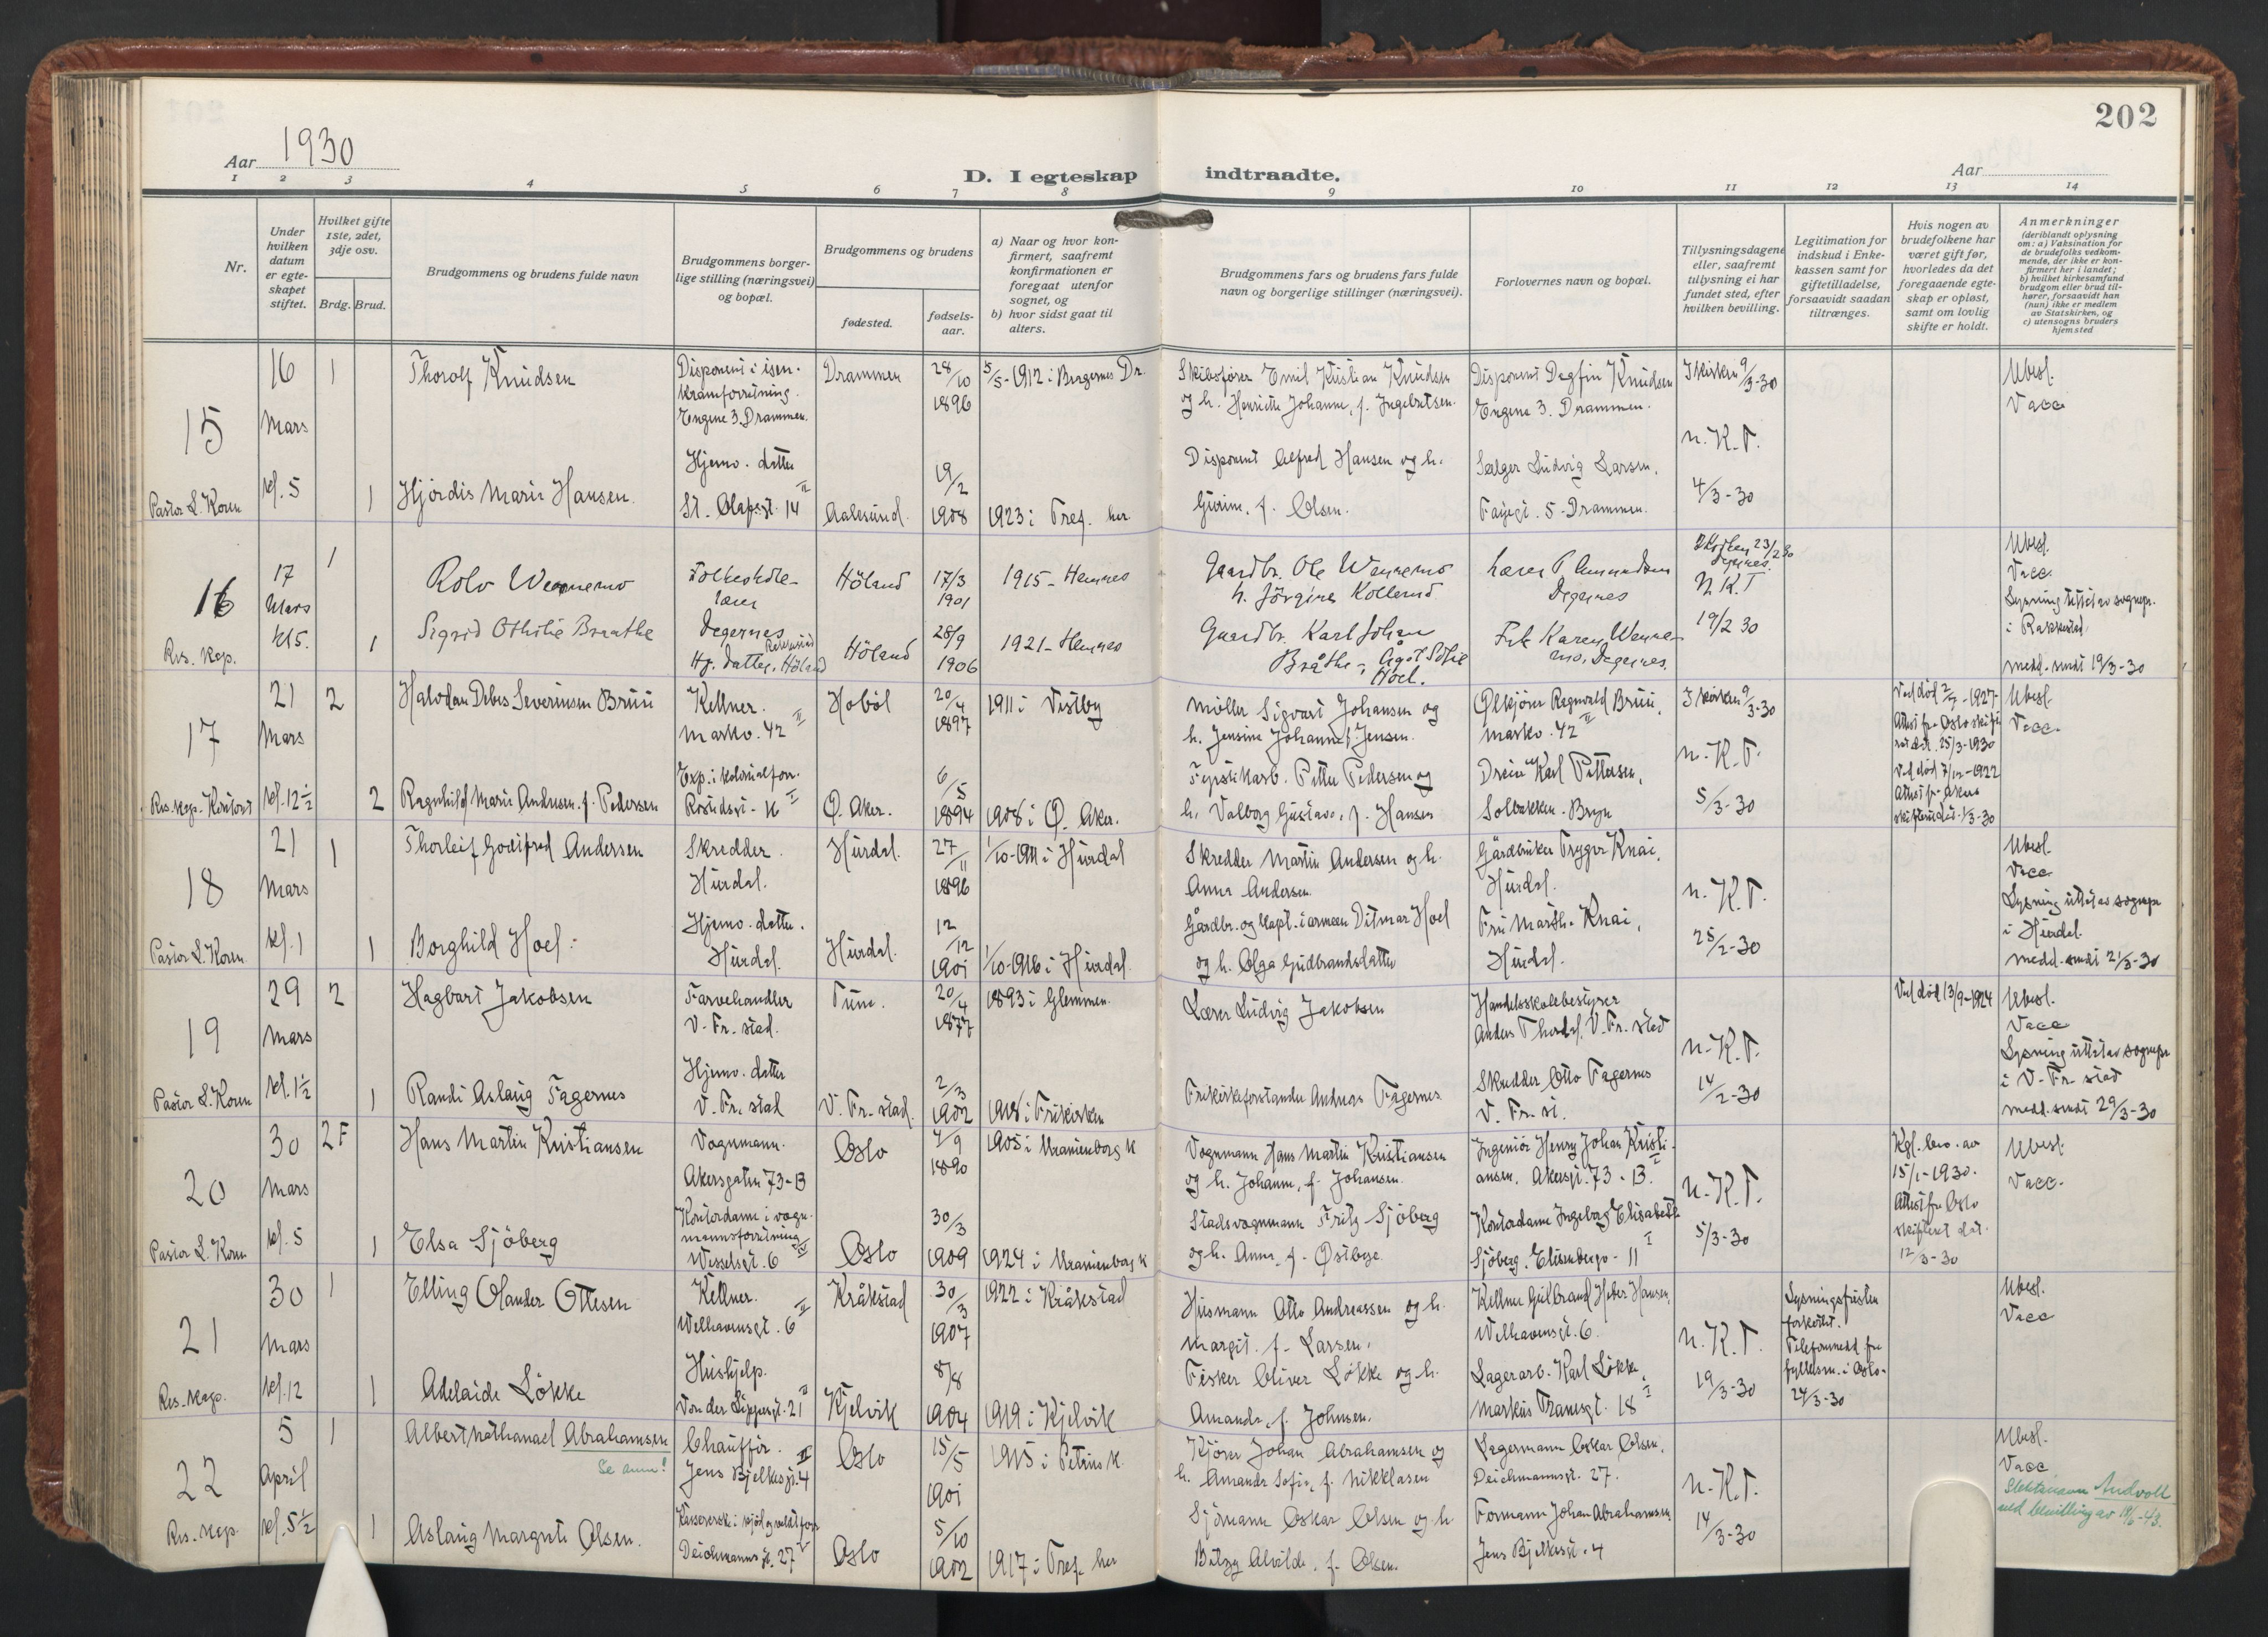 202
Aar 1930
D. I egteskap indtraadte.
Aar
1 2 3 4 5 6 7 8 9 10 11 12 13 14
Nr.
Under hvilken datum er egte-skapet stiftet.
Hvilket gifte 1ste, 2det, 3dje osv.
Brdg. Brud.
Brudgommens og brudens fulde navn
Brudgommens borger-lige stilling (næringsvei) og bopæl.
Brudgommens og brudens
fødested.
fødsels-aar.
a) Naar og hvor kon-firmert, saafremt konfirmationen er foregaat utenfor sognet, og
b) hvor sidst gaat til alters.
Brudgommens fars og brudens fars fulde navn og borgerlige stillinger (næringsvei).
Forlovernes navn og bopæl.
Tillysningsdagene eller, saafremt tilysning ei har fundet sted, efter hvilken bevilling.
Legitimation for indskud i Enke-kassen samt for giftetilladelse, forsaavidt saadan tiltrænges.
Hvis nogen av brudefolkene har været gift før, hvorledes da det foregaaende egte-skap er opløst, samt om lovlig skifte er holdt.
Anmerkninger
(deriblandt oplysning om: a) Vaksination for de brudefolks vedkom-mende, der ikke er kon-firmert her i landet; b) hvilket kirkesamfund brudgom eller brud til-hører, forsaavidt han (hun) ikke er medlem av Statskirken, og c) utensogns bruders hjemsted
15
16 Mars kl. 5
Pastor L. Koren
1
Thorolf Knudsen
Disponent i isen-
kramforretning.
Engene 3. Drammen.
Drammen
28/10 1896
5/5-1912 i Bragernes Dr.
Skibsfører Emil Kristian Knudsen
og h. Henriette Johanne, f. Ingebretsen.
Disponent Dagfin Knudsen
Engene 3. Drammen.
I kirken 9/3-30
n. K. T.
4/3-30
Ubesl.
Vacc
1
Hjördis Marie Hansen.
Hjemv. datter
St. Olafsgt. 14 II
Aalesund.
19/2 1908
1923 i Tref. her
Disponent Alfred Hansen og h.
Gurine, f. Olsen.
Sælger Ludvig Larsen,
Fayegt. 5 - Drammen.
16
17 Mars kl 5.
Res. kap.
1
Rolv Wennemo
Folkeskole-
lærer
Degernes
Höland
17/3 1901
1915 - Hemnes
Gaardbr. Ole Wennemo
h. Jörgine Kollerud
Lærer P. Amundsen
Degernes
I kirken 23/2 30
Degernes.
N. K. T
19/2 30
Ubesl.
Vacc.
Lysning utført av sognepr.
i Rakkestad.
medd. sendt 19/3-30
1
Sigrid Othilie Braathe
Hj. datter, Höland
Höland
28/9 1906
1921 - Hemnes
Gaardbr. Karl Johan
Bråthe - Ågot Sofie
Hoel.
Frk Karen Wenne-
mo, Degernes.
17
21 Mars kl. 12 1/2
Res. kap. Kontoret
2
Halvdan Debes Severinsen Bruu
Kellner.
Markv. 42 II
Hobøl
20/4 1897
1911 i Vestby
Møller Sigvart Johansen og
h. Jensine Johanne f. Jensen.
Ølkjører Ragnvald Bruu,
Markv. 42 II
I kirken 9/3-30
n. K. T.
5/3-30
Ved død 2/7-1927
Attest fra Oslo skifte-
ret dat. 25/3-1930
Ved død 7/12-1922
Attest fr. Akers
skifterett dat. 1/3-30
Ubesl.
Vacc.
2
Ragnhild Marie Andresen f. Pedersen
Exp. i kolonialforr.
Ø. Aker.
6/5 1894
1908 i Ø. Aker.
Fyrstikarb. Petter Pedersen og
h. Valborg Gustava, f. Hansen
Dreier Karl Pettersen,
Solbakken - Bryn
18
21 Mars kl. 1
Pastor L. Koren
1
Thorleif Godtfred Andersen
Skredder.
Hurdal.
Hurdal.
27/11 1896
1/10-1911 i Hurdal
Skredder Martin Andersen og h.
Anna Andersen.
Gårdbruker Trygve Knai,
Hurdal.
n. K. T.
25/2-30
Ubesl.
Vacc.
Lysning utført av sognepr
i Hurdal.
medd. sendt 21/3-30
1
Borghild Hoel.
Hjemv. datter.
Hurdal.
Hurdal.
12/12 1901
1/10-1916 i Hurdal.
Gårdbr. og kapt. i armeen Ditmar Hoel
og h. Olga Gudbrandsdatter
Fru Martha Knai,
Hurdal.
19
29 Mars kl. 1 1/2
Pastor L. Koren
2
Hagbart Jakobsen
Farvehandler
V. Fr. stad.
Tune.
20/4 1877
1893 i Glemmen.
Lærer Ludvig Jakobsen
Handelsskolebestyrer
Anders Thordal, V. Fr. stad
n. K. T.
14/2-30
Ved død 13/9-1924
Ubesl.
Vacc
Lysning utført av sognepr
i V. Fr. stad
medd. sendt 29/3-30
1
Randi Aslaug Fagernes
Hjemv. datter
V. Fr. stad
V. Fr. stad.
2/3 1902
1918 i Frikirken
Frikirkeforstander Andreas Fagernes
Skredder Otto Fagernes
V. Fr. st.
20
30 Mars kl. 5
Pastor L. Koren
2 F
Hans Martin Kristiansen
Vognmann.
Akersgaten 73-B
Oslo
4/9 1890
1905 i Uranienborg k
Vognmann Hans Martin Kristiansen
og h. Johanne, f. Johansen.
Ingeniør Henry Johan Kristi-
ansen, Akersgt. 73 - B. I
n. K. T.
5/3-30
Kgl. bev. av
15/1-1930.
Attest fra Oslo
skifteret dat.
12/3-30
Ubesl.
Vacc.
1
Elsa Sjöberg
Kontordame i vogn-
mannsforretning
Wesselsgt. 6 IV
Oslo
30/3 1909
1924 i Uranienborg k
Stadsvognmann Fritz Sjöberg
og h. Anna, f. Østbye.
Kontordame Ingeborg Elisabeth
Sjöberg. Eilert
21
30 Mars kl. 12
Res. kap.
1
Elling Olander Ottesen
Kellner.
Welhavensgt. 6 II
Kråkstad
30/3 1907
1922 i Kråkstad
Husmann Otto Andreassen og h.
Margit, f. Larsen.
Kellner Gulbrand Heber Hansen,
Welhavensgt. 6.
n. K. T.
19/3-30
Lysningsfristen
forkortet.
Telefonmedd. fra
fylkesm. i Oslo.
24/3-30
Ubesl.
Vacc
1
Adelaide Lökke
Hushjelp.
Von der Lippesgt. 21 II
Kjelvik
8/8 1904
1919 i Kjelvik
Fisker Oliver Lökke og h.
Amanda, f. Johnsen.
Lagerarb. Karl Lökke,
Markus Tranesgt. 18 I
22
5 April kl. 5 1/2
Res. kap.
1
Albert Nathanael Abrahamsen
Se anm!
Chauffør.
Jens Bjelkesgt. 4 II
Oslo
15/5 1901
1915 i Petrus k.
Kjører Johan Abrahamsen og
h. Amanda Sofie, f. Nikklasen
Lagermann Oskar Olsen,
Deichmannsgt. 27.
n. K. T.
14/3-30
Ubesl.
Vacc
Slektsnavn Andvolt
ved bevilling av 18/6-43.
1
Aslaug Margrete Olsen.
Deichmanns gt. 27 I
Oslo
5/10 1902
1917 i Tref. her
Sjömann Oskar Olsen og h.
Betzy Alvilde, f. Olsen.
Formann Johan Abrahamsen,
Jens Bjelkesgt. 4